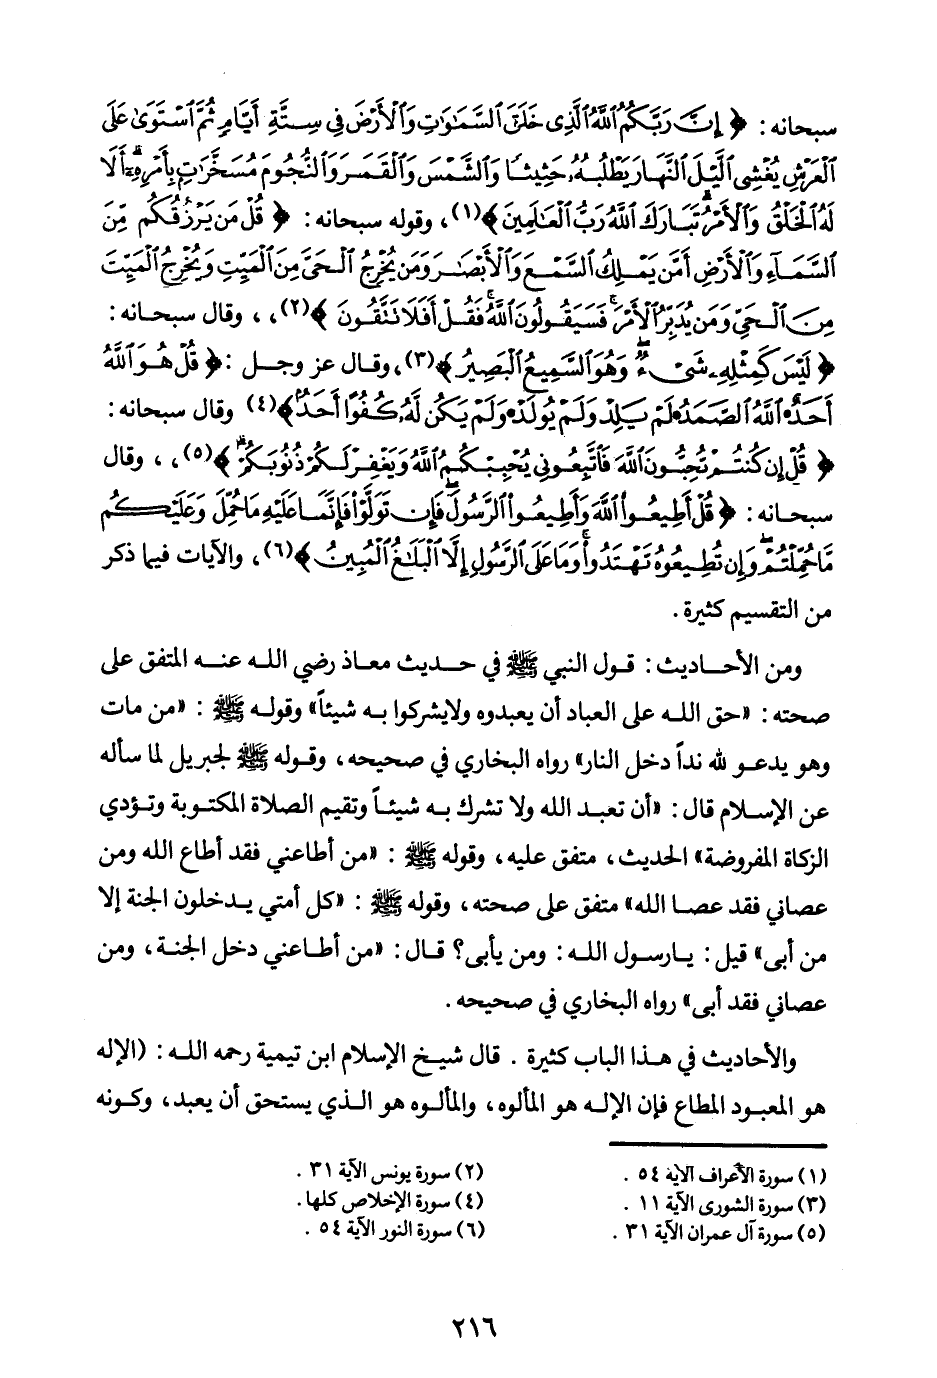 سبحانه : ﴿ إِنَّ رَبَّكُمُ اللَّهُ الَّذِي خَلَقَ السَّمَاوَاتِ وَالْأَرْضَ فِي سِتَّةِ أَيَّامٍ ثُمَّ اسْتَوَىٰ عَلَى
الْعَرْشِ يُغْشِي اللَّيْلَ النَّهَارَ يَطْلُبُهُ حَثِيثًا وَالشَّمْسَ وَالْقَمَرَ وَالنُّجُومَ مُسَخَّرَاتٍ بِأَمْرِهِ أَلَا
لَهُ الْخَلْقُ وَالْأَمْرُ تَبَارَكَ اللَّهُ رَبُّ الْعَالَمِينَ ﴾(١)، وقوله سبحانه : ﴿ قُلْ مَن يَرْزُقُكُم مِّنَ
السَّمَاءِ وَالْأَرْضِ أَمَّن يَمْلِكُ السَّمْعَ وَالْأَبْصَارَ وَمَن يُخْرِجُ الْحَيَّ مِنَ الْمَيِّتِ وَيُخْرِجُ الْمَيِّتَ
مِنَ الْحَيِّ وَمَن يُدَبِّرُ الْأَمْرَ فَسَيَقُولُونَ اللَّهُ فَقُلْ أَفَلَا تَتَّقُونَ ﴾(٢)، ، وقال سبحانه :
﴿ لَيْسَ كَمِثْلِهِ شَيْءٌ وَهُوَ السَّمِيعُ الْبَصِيرُ ﴾(٣)، وقال عز وجل : ﴿ قُلْ هُوَ اللَّهُ
أَحَدٌ اللَّهُ الصَّمَدُ لَمْ يَلِدْ وَلَمْ يُولَدْ وَلَمْ يَكُن لَّهُ كُفُوًا أَحَدٌ ﴾(٤) وقال سبحانه :
﴿ قُلْ إِن كُنتُمْ تُحِبُّونَ اللَّهَ فَاتَّبِعُونِي يُحْبِبْكُمُ اللَّهُ وَيَغْفِرْ لَكُمْ ذُنُوبَكُمْ ﴾(٥)، ، وقال
سبحانه : ﴿ قُلْ أَطِيعُوا اللَّهَ وَأَطِيعُوا الرَّسُولَ فَإِن تَوَلَّوْا فَإِنَّمَا عَلَيْهِ مَا حُمِّلَ وَعَلَيْكُم
مَّا حُمِّلْتُمْ وَإِن تُطِيعُوهُ تَهْتَدُوا وَمَا عَلَى الرَّسُولِ إِلَّا الْبَلَاغُ الْمُبِينُ ﴾(٦)، والآيات فيما ذكر
من التقسيم كثيرة .
ومن الأحاديث : قول النبي ﷺ في حديث معاذ رضي الله عنه المتفق على
صحته : «حق الله على العباد أن يعبدوه ولايشركوا به شيئاً» وقوله ﷺ : «من مات
وهو يدعو لله نداً دخل النار» رواه البخاري في صحيحه ، وقوله ﷺ لجبريل لما سأله
عن الإسلام قال : «أن تعبد الله ولا تشرك به شيئاً وتقيم الصلاة المكتوبة وتؤدي
الزكاة المفروضة» الحديث، متفق عليه، وقوله ﷺ : «من أطاعني فقد أطاع الله ومن
عصاني فقد عصا الله» متفق على صحته ، وقوله ﷺ : «كل أمتي يدخلون الجنة إلا
من أبى» قيل : يارسول الله : ومن يأبى؟ قال : «من أطاعني دخل الجنة ، ومن
عصاني فقد أبى» رواه البخاري في صحيحه .
والأحاديث في هذا الباب كثيرة . قال شيخ الإسلام ابن تيمية رحمه الله : (الإله
هو المعبود المطاع فإن الإله هو المألوه، والمألوه هو الذي يستحق أن يعبد ، وكونه
(١) سورة الأعراف الآية ٥٤ . (٢) سورة يونس الآية ٣١ .
(٣) سورة الشورى الآية ١١ . (٤) سورة الإخلاص كلها .
(٥) سورة آل عمران الآية ٣١ . (٦) سورة النور الآية ٥٤ .
٢١٦